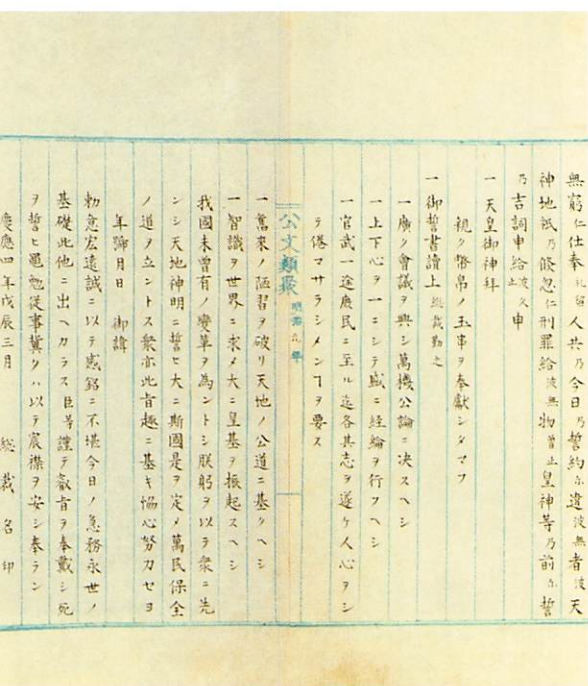 無窮仁仕奉礼留人共乃今日乃誓約尓違波無者波天
神地祇乃倏忽仁刑罪給波無物曽止皇神等乃前尓誓
乃吉詞申給波久止申
一天皇御神拜
親ク幣帛ノ玉串ヲ奉獻シタマフ
一御誓書讀上総裁勤之
一廣ク會議ヲ興シ萬機公論ニ决スヘシ
一上下心ヲ一ニシテ盛ニ経綸ヲ行フヘシ
一官武一途庶民ニ至ル迄各其志ヲ遂ケ人心ヲシ
テ倦マサラシメンヿヲ要ス
公文類聚 明治九年
一舊來ノ陋習ヲ破リ天地ノ公道ニ基クヘシ
一智識ヲ世界ニ求メ大ニ皇基ヲ振起スヘシ
我國未曾有ノ變革ヲ為ントシ朕躬ヲ以テ衆ニ先
ンシ天地神明ニ誓ヒ大ニ斯國是ヲ定メ萬民保全
ノ道ヲ立ントス衆亦此旨趣ニ基キ協心努力セヨ
年號月日 御諱
勅意宏遠誠ニ以テ感銘ニ不堪今日ノ急務永世ノ
基礎此他ニ出ヘカラス臣等謹テ叡旨ヲ奉戴シ死
ヲ誓ヒ黽勉従事冀クハ以テ宸襟ヲ安シ奉ラン
慶應四年戊辰三月 総裁名印